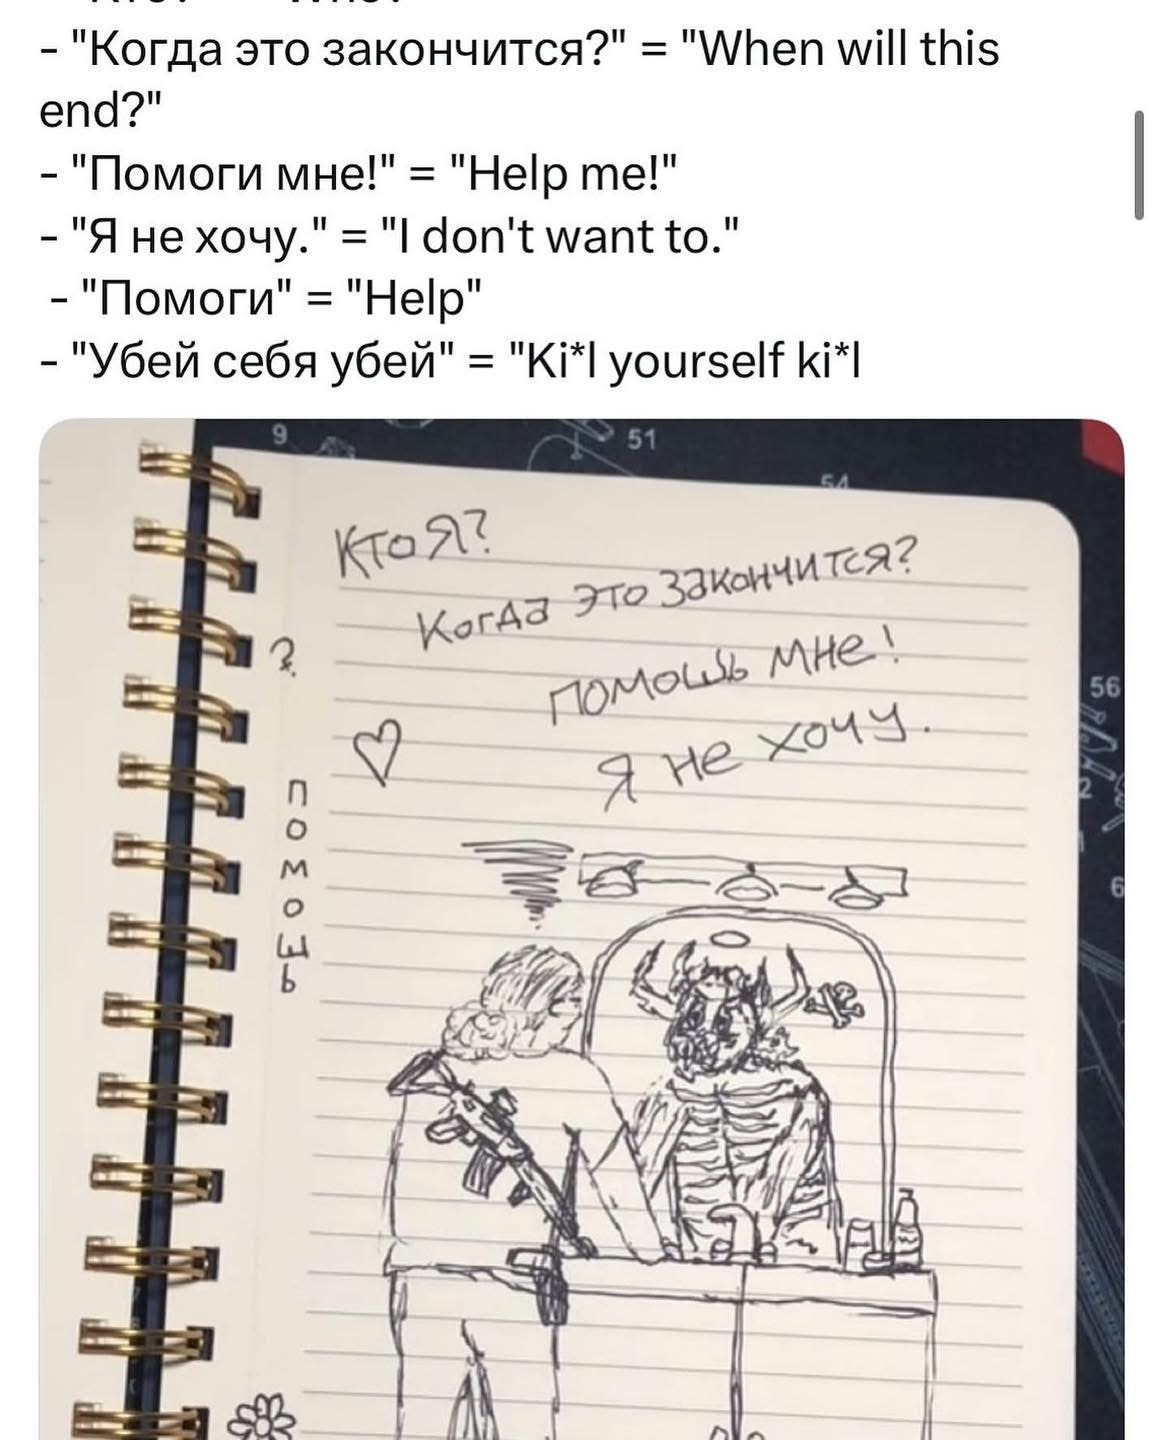 - "Когда это закончится?" = "When will this
end?"
- "Помоги мне!" = "Help me!"
- "Я не хочу." = "I don't want to."
- "Помоги" = "Help"
- "Убей себя убей" = "Ki*l yourself ki*l
9
51
54
Кто Я?
Когда это закончится?
?
помошь мне!
56
Я не хочу.
помощь
2
6